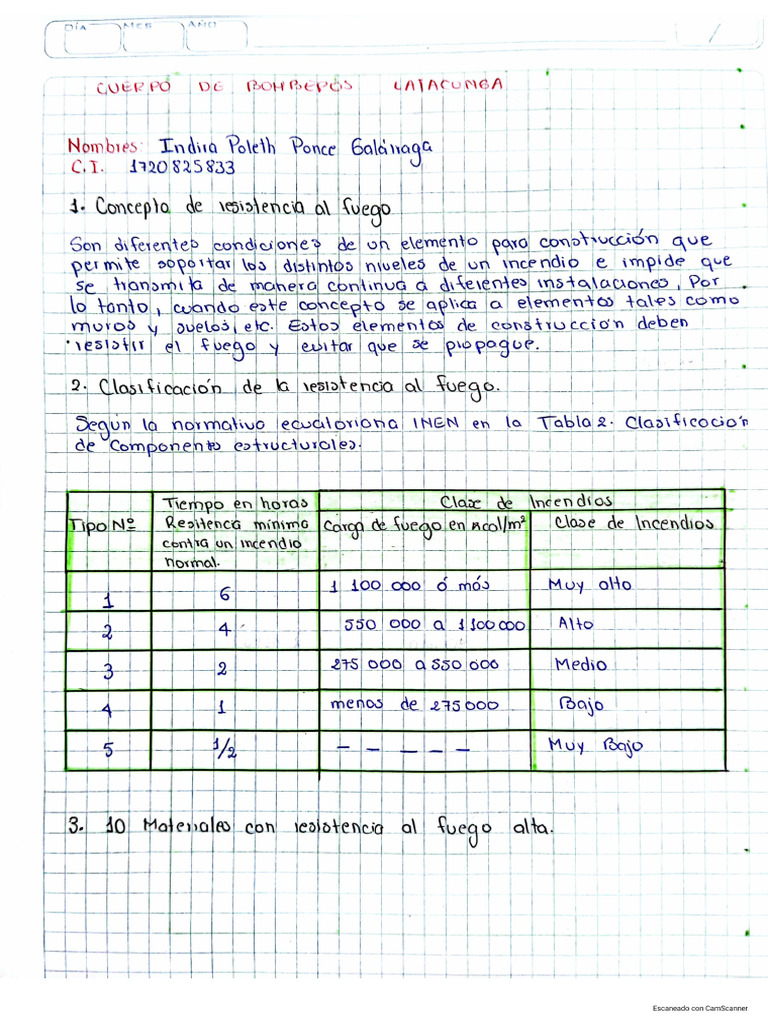 DÍA MES AÑO
CUERPO DE BOMBEROS LATACUNGA
Nombres: Indira Poleth Ponce Galárraga
C.I. 1720825833
1. Concepto de resistencia al fuego
Son diferentes condiciones de un elemento para construcción que
permite soportar los distintos niveles de un incendio e impide que
se transmita de manera continua a diferentes instalaciones, Por
lo tanto, cuando este concepto se aplica a elementos tales como
muros y suelos, etc. Estos elementos de construcción deben
resistir el fuego y evitar que se propague.
2. Clasificación de la resistencia al fuego.
Según la normativa ecuatoriana INEN en la Tabla 2. Clasificación
de Componentes estructurales.
Tipo Nº
Tiempo en horas
Resitencia mínima
contra un incendio
normal.
Clase de Incendios
Carga de fuego en Kcal/m² Clase de Incendios
1 6 1 100 000 ó más Muy alto
2 4 550 000 a 1 100 000 Alto
3 2 275 000 a 550 000 Medio
4 1 menos de 275 000 Bajo
5 1/2 - - - - - Muy Bajo
3. 10 Materiales con resistencia al fuego alta.
Escaneado con CamScanner